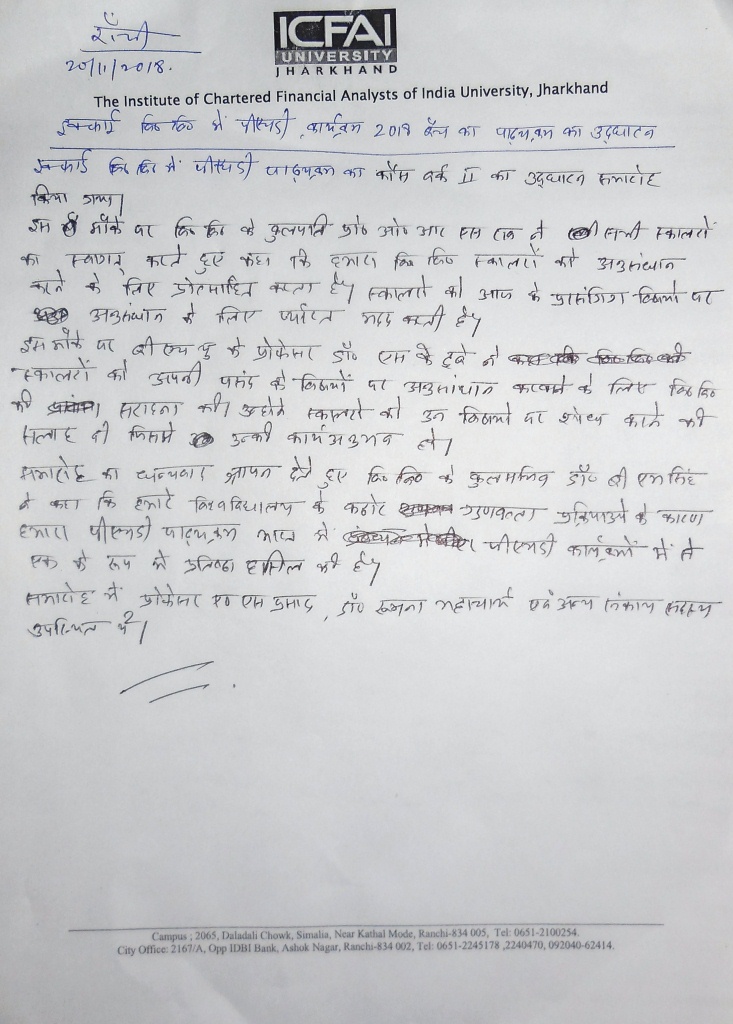 राँची
20/11/2018.
ICFAI
UNIVERSITY
JHARKHAND
The Institute of Chartered Financial Analysts of India University, Jharkhand
इक्फाई वि० वि० में पीएचडी कार्यक्रम 2018 बैच का पाठ्यक्रम का उद्घाटन
इक्फाई वि० वि० में पीएचडी पाठ्यक्रम का कोर्स वर्क II का उद्घाटन समारोह
किया गया|
इस मौके पर वि० वि० के कुलपति प्रो० ओ० आर एस राव ने सभी स्कालरों
का स्वागत करते हुए कहा कि हमारा वि० वि० स्कालरों को अनुसंधान
करने के लिए प्रोत्साहित करता है| स्कालरों को आज के प्रासंगिग विषयों पर
अनुसंधान के लिए पर्याप्त मदद करती है|
इस मौके पर बी एच यु के प्रोफेसर डॉ० एस के दूबे ने
स्कालरों को अपनी पसंद के विषयों पर अनुसांधान करवाने के लिए वि० वि०
की सराहना की| उन्होंने स्कालरों को उन विषयों पर शोध करने की
सलाह दी जिसमे उनकी कार्य अनुभव हो|
समारोह का धन्यवाद ज्ञापन देते हुए वि० वि० के कुलसचिव डॉ० बी एम सिंह
ने कहा कि हमारे विश्वविद्यालय के कठोर गुणवत्ता प्रक्रियाओं के कारण
हमारा पीएचडी पाठ्यक्रम भारत में पीएचडी कार्यक्रमों में से
एक के रूप में प्रतिष्ठा हासिल की है|
समारोह में प्रोफेसर एस प्रसाद, डॉ० भट्टाचार्य एवं अन्य संकाय सदस्य
उपस्थित थे|
Campus : 2065, Daladali Chowk, Simalia, Near Kathal Mode, Ranchi-834 005, Tel: 0651-2100254.
City Office: 2167/A, Opp IDBI Bank, Ashok Nagar, Ranchi-834 002, Tel: 0651-2245178 ,2240470, 092040-62414.